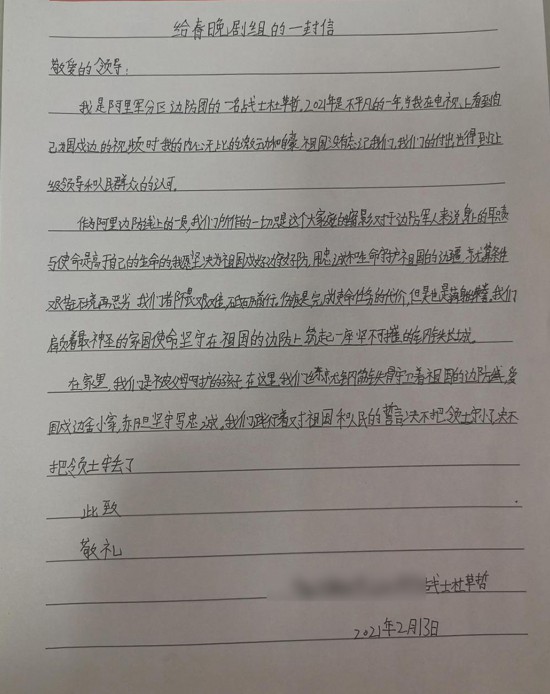 给春晚剧组的一封信
敬爱的领导:
我是阿里军分区边防团的一名战士杜草哲,2021年是不平凡的一年,当我在电视上看到自
己为国戍边的视频时我的内心无比的激动和自豪,祖国没有忘记我们,我们的付出也得到上
级领导和人民群众的认可。
作为阿里边防线上的一员,我们所作的一切只是这个大家庭的缩影对于边防军人来说身上的职责
与使命是高于自己的生命的我愿坚决为祖国戍好边守好防,用忠诚和生命守护祖国的边疆,无论条件
艰苦环境再恶劣 我们者前行,伤痕是完成使命任务的代价,但是也是,我们
肩负着最神圣的家国使命坚守在祖国的边防上筑起一座坚不可摧的钢铁长城。
在家里,我们是被父母呵护的孩子,在这里,我们守卫着祖国的边防线,爱
国戍边舍小家,赤胆坚守写忠诚,我们践行着对祖国和人民的誓言决不把领土守小了,决不
把领土守丢了
此致
敬礼
战士杜草哲
2021年2月13日